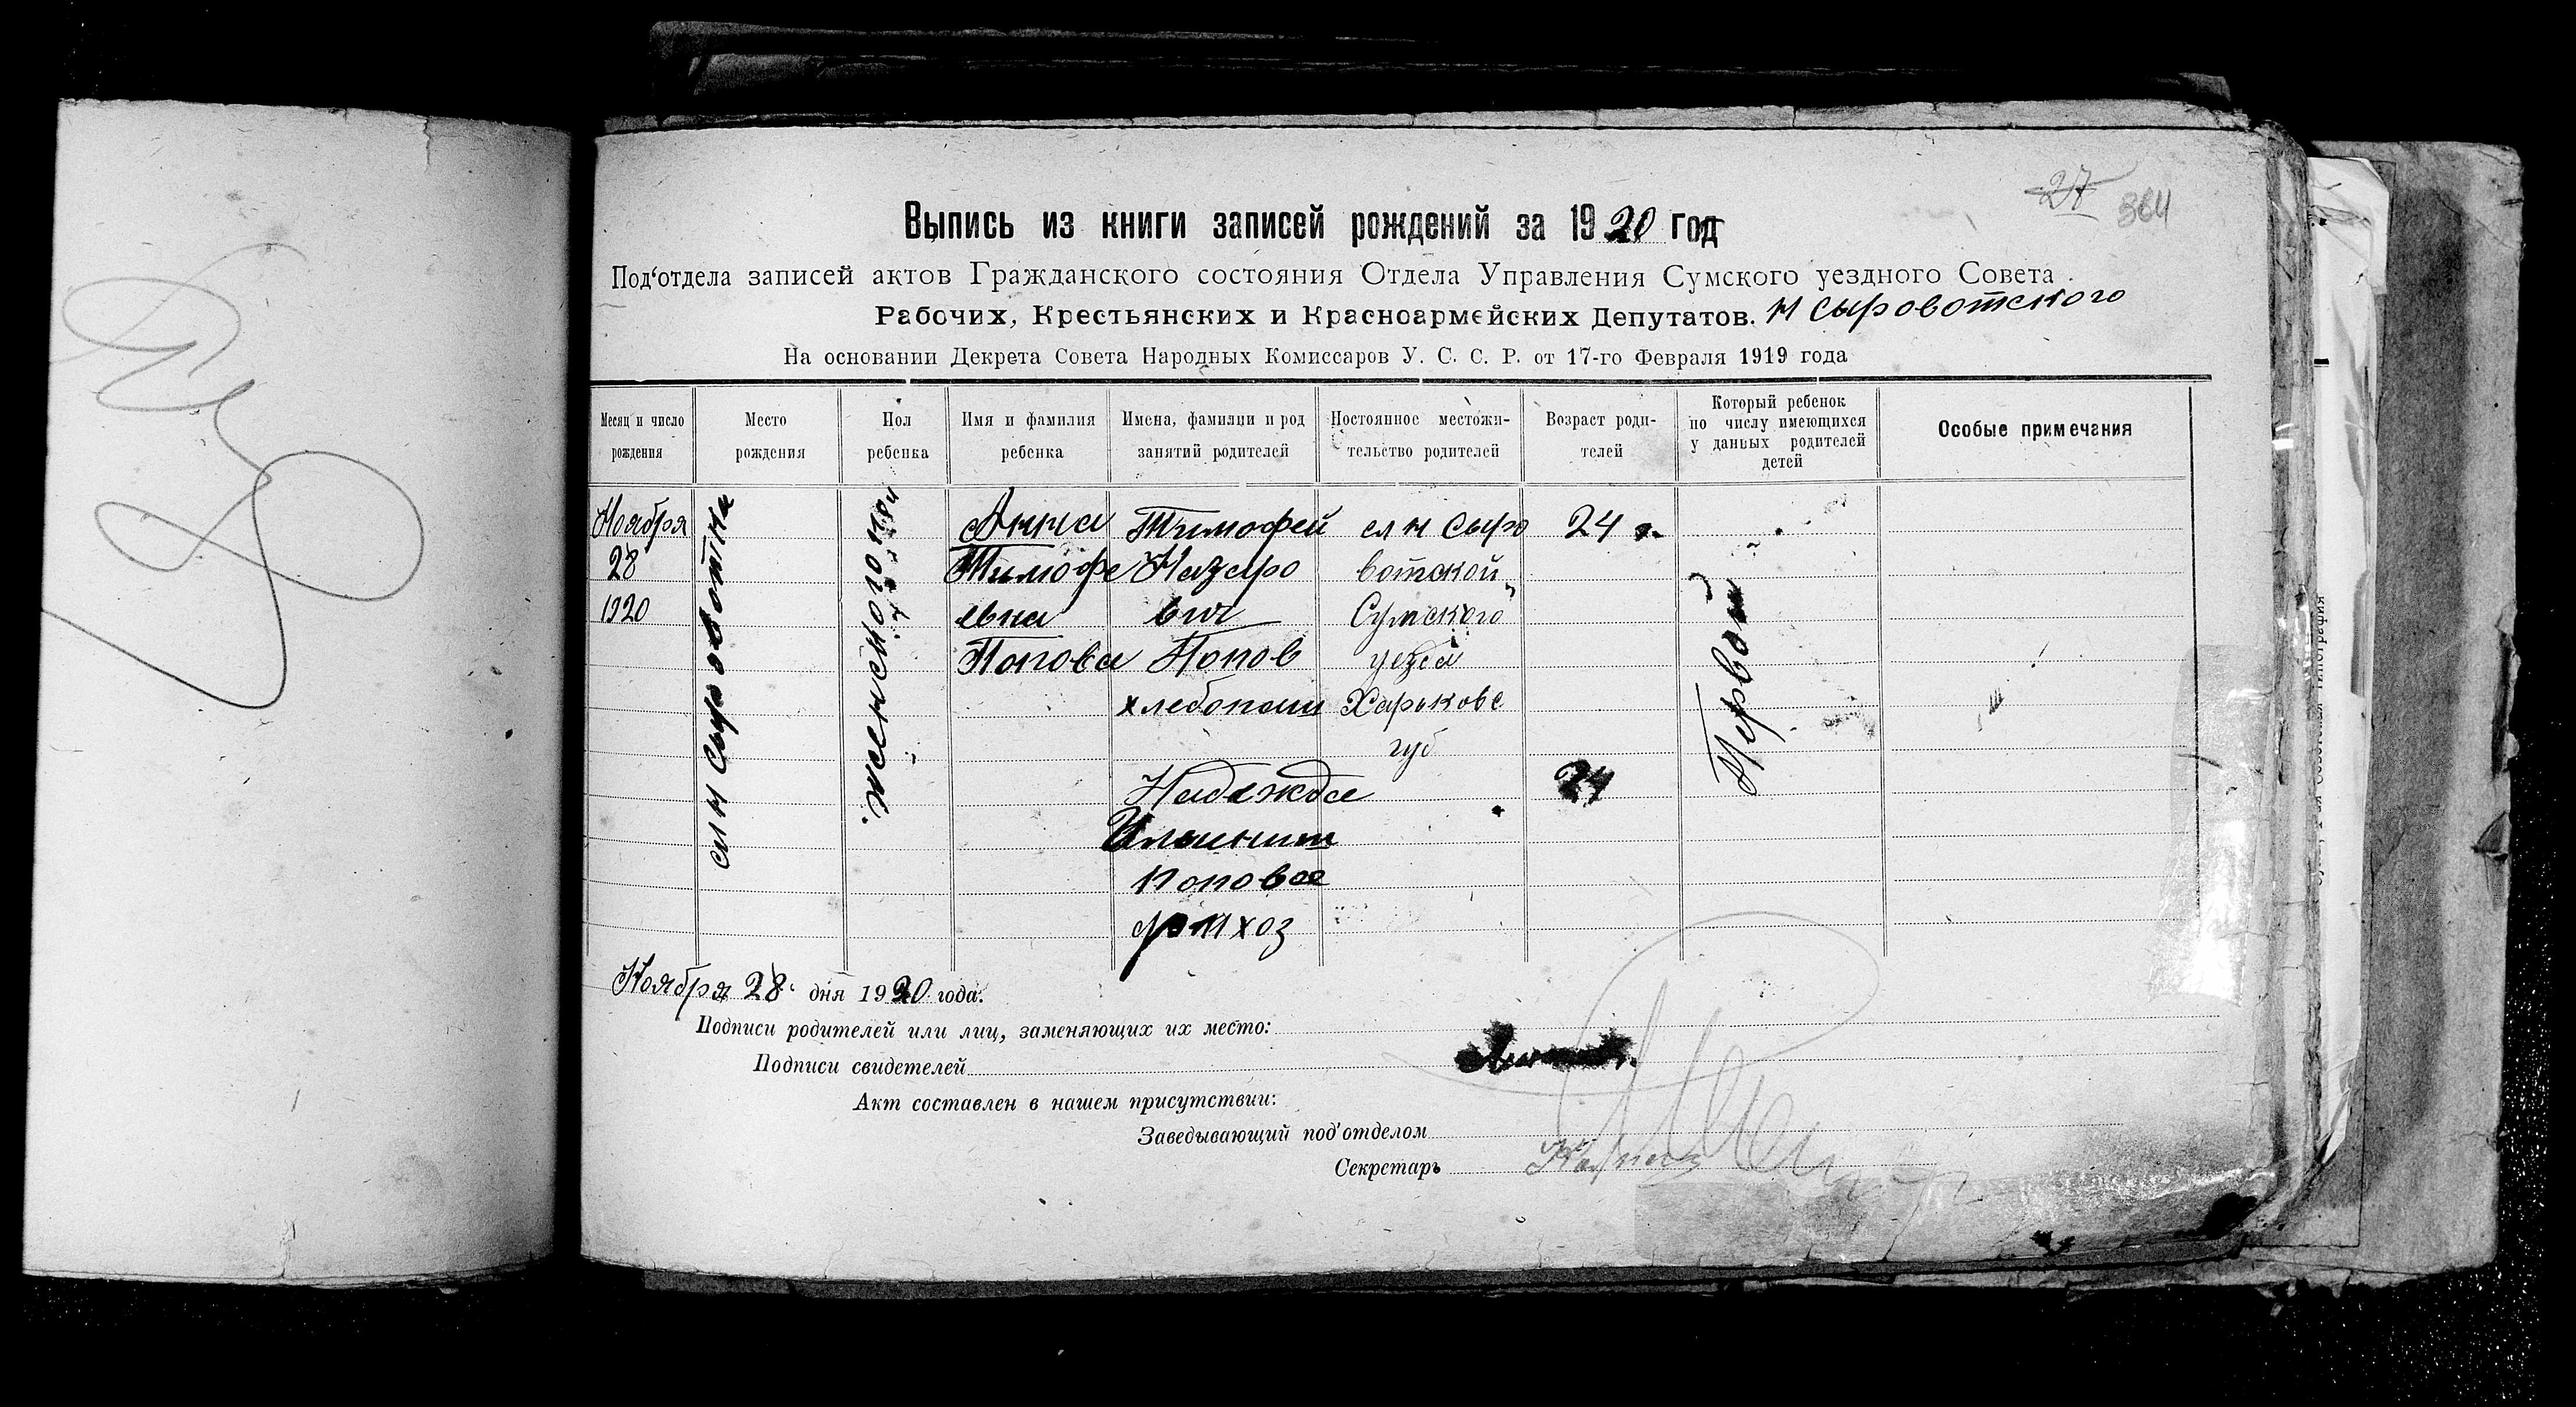 27 364
Выпись из книги записей рождений за 1920 год
Под‘отдела записей актов Гражданского состояния Отдела Управления Сумского уездного Совета
Рабочих, Крестьянских и Красноармейских Депутатов. Н Сыровотского
На основании Декрета Совета Народных Комиссаров У. С. С. Р. от 17-го Февраля 1919 года
Месяц и число рождения
Место рождения
Пол ребенка
Имя и фамилия ребенка
Имена, фамилии и род занятий родителей
Постоянное местожительство родителей
Возраст родителей
Который ребенок по числу имеющихся у данных родителей детей
Особые примечания
Ноября
28
1920
сл Н Сыровотка
женского пола
Анна
Тимофе
евна
Попова
Тимофей
Назаро
вич
Попов
хлебопаш
Надежда
Попова
хоз
сл Н Сыро
вотской
Сумского
уезда
Харьковс
губ
24 г.
24
Первой
Ноября 28 дня 1920 года.
Подписи родителей или лиц, заменяющих их место:
Подписи свидетелей
Акт составлен в нашем присутствии:
Заведывающий под‘отделом
Секретарь